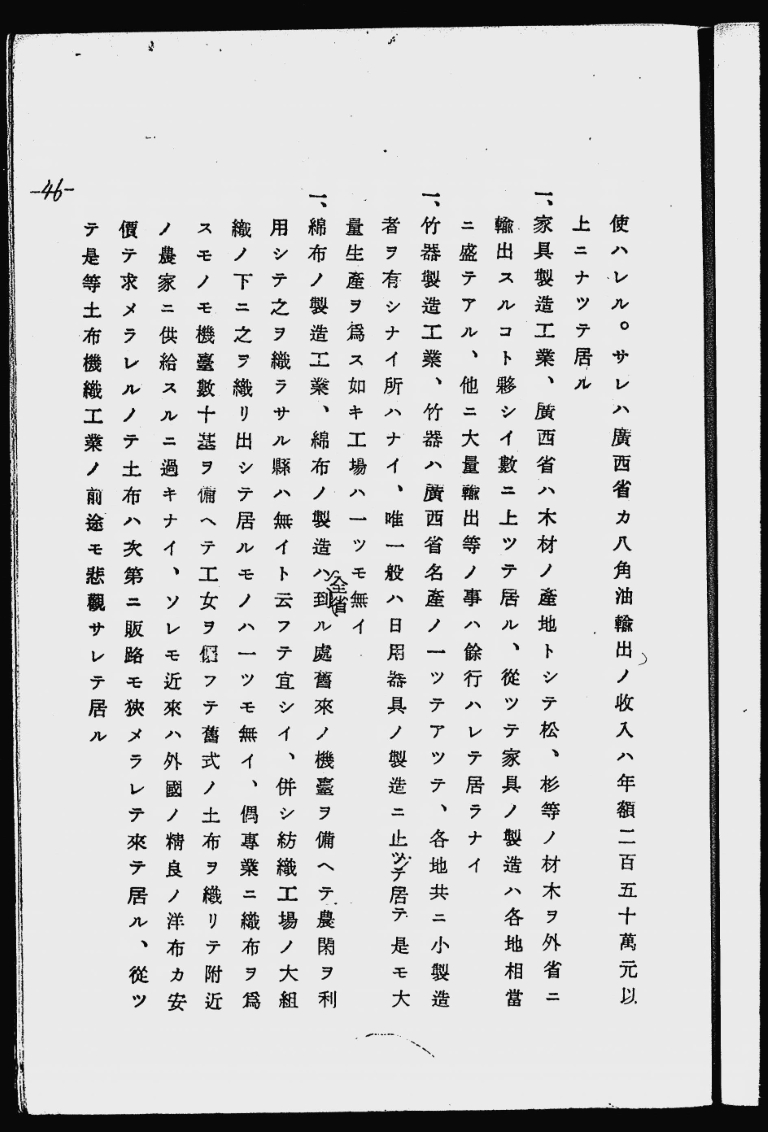 使ハレル。サレハ廣西省カ八角油輸出ノ收入ハ年額二百五十萬元以
上ニナツテ居ル
一、家具製造工業、廣西省ハ木材ノ產地トシテ松、杉等ノ材木ヲ外省ニ
輸出スルコト夥シイ數ニ上ツテ居ル、從ツテ家具ノ製造ハ各地相當
ニ盛テアル、他ニ大量輸出等ノ事ハ餘行ハレテ居ラナイ
一、竹器製造工業、竹器ハ廣西省名產ノ一ツテアツテ、各地共ニ小製造
者ヲ有シナイ所ハナイ、唯一般ハ日用器具ノ製造ニ止ツテ居テ是モ大
量生產ヲ爲ス如キ工場ハ一ツモ無イ
一、綿布ノ製造工業、綿布ノ製造ハ全省到ル處舊來ノ機臺ヲ備ヘテ農閑ヲ利
用シテ之ヲ織ラサル縣ハ無イト云フテ宜シイ、併シ紡織工場ノ大組
織ノ下ニ之ヲ織リ出シテ居ルモノハ一ツモ無イ、偶專業ニ織布ヲ爲
スモノモ機臺數十基ヲ備ヘテ工女ヲ傭フテ舊式ノ土布ヲ織リテ附近
ノ農家ニ供給スルニ過キナイ、ソレモ近來ハ外國ノ精良ノ洋布カ安
價テ求メラレルノテ土布ハ次第ニ販路モ狹メラレテ來テ居ル、從ツ
テ是等土布機織工業ノ前途モ悲觀サレテ居ル
-46-